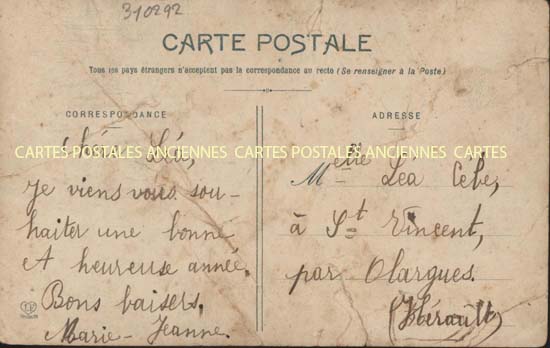 310292
CARTE POSTALE
Tous les pays étrangers n'acceptent pas la correspondance au recto (Se renseigner à la Poste)
CORRESPONDANCE
Chère Léa,
Je viens vous sou-
haiter une bonne
& heureuse année.
Bons baisers,
Marie-Jeanne.
ADRESSE
Melle Léa Cèbe,
à St Vincent,
par Olargues.
(Hérault)
CARTES POSTALES ANCIENNES CARTES POSTALES ANCIENNES CARTES